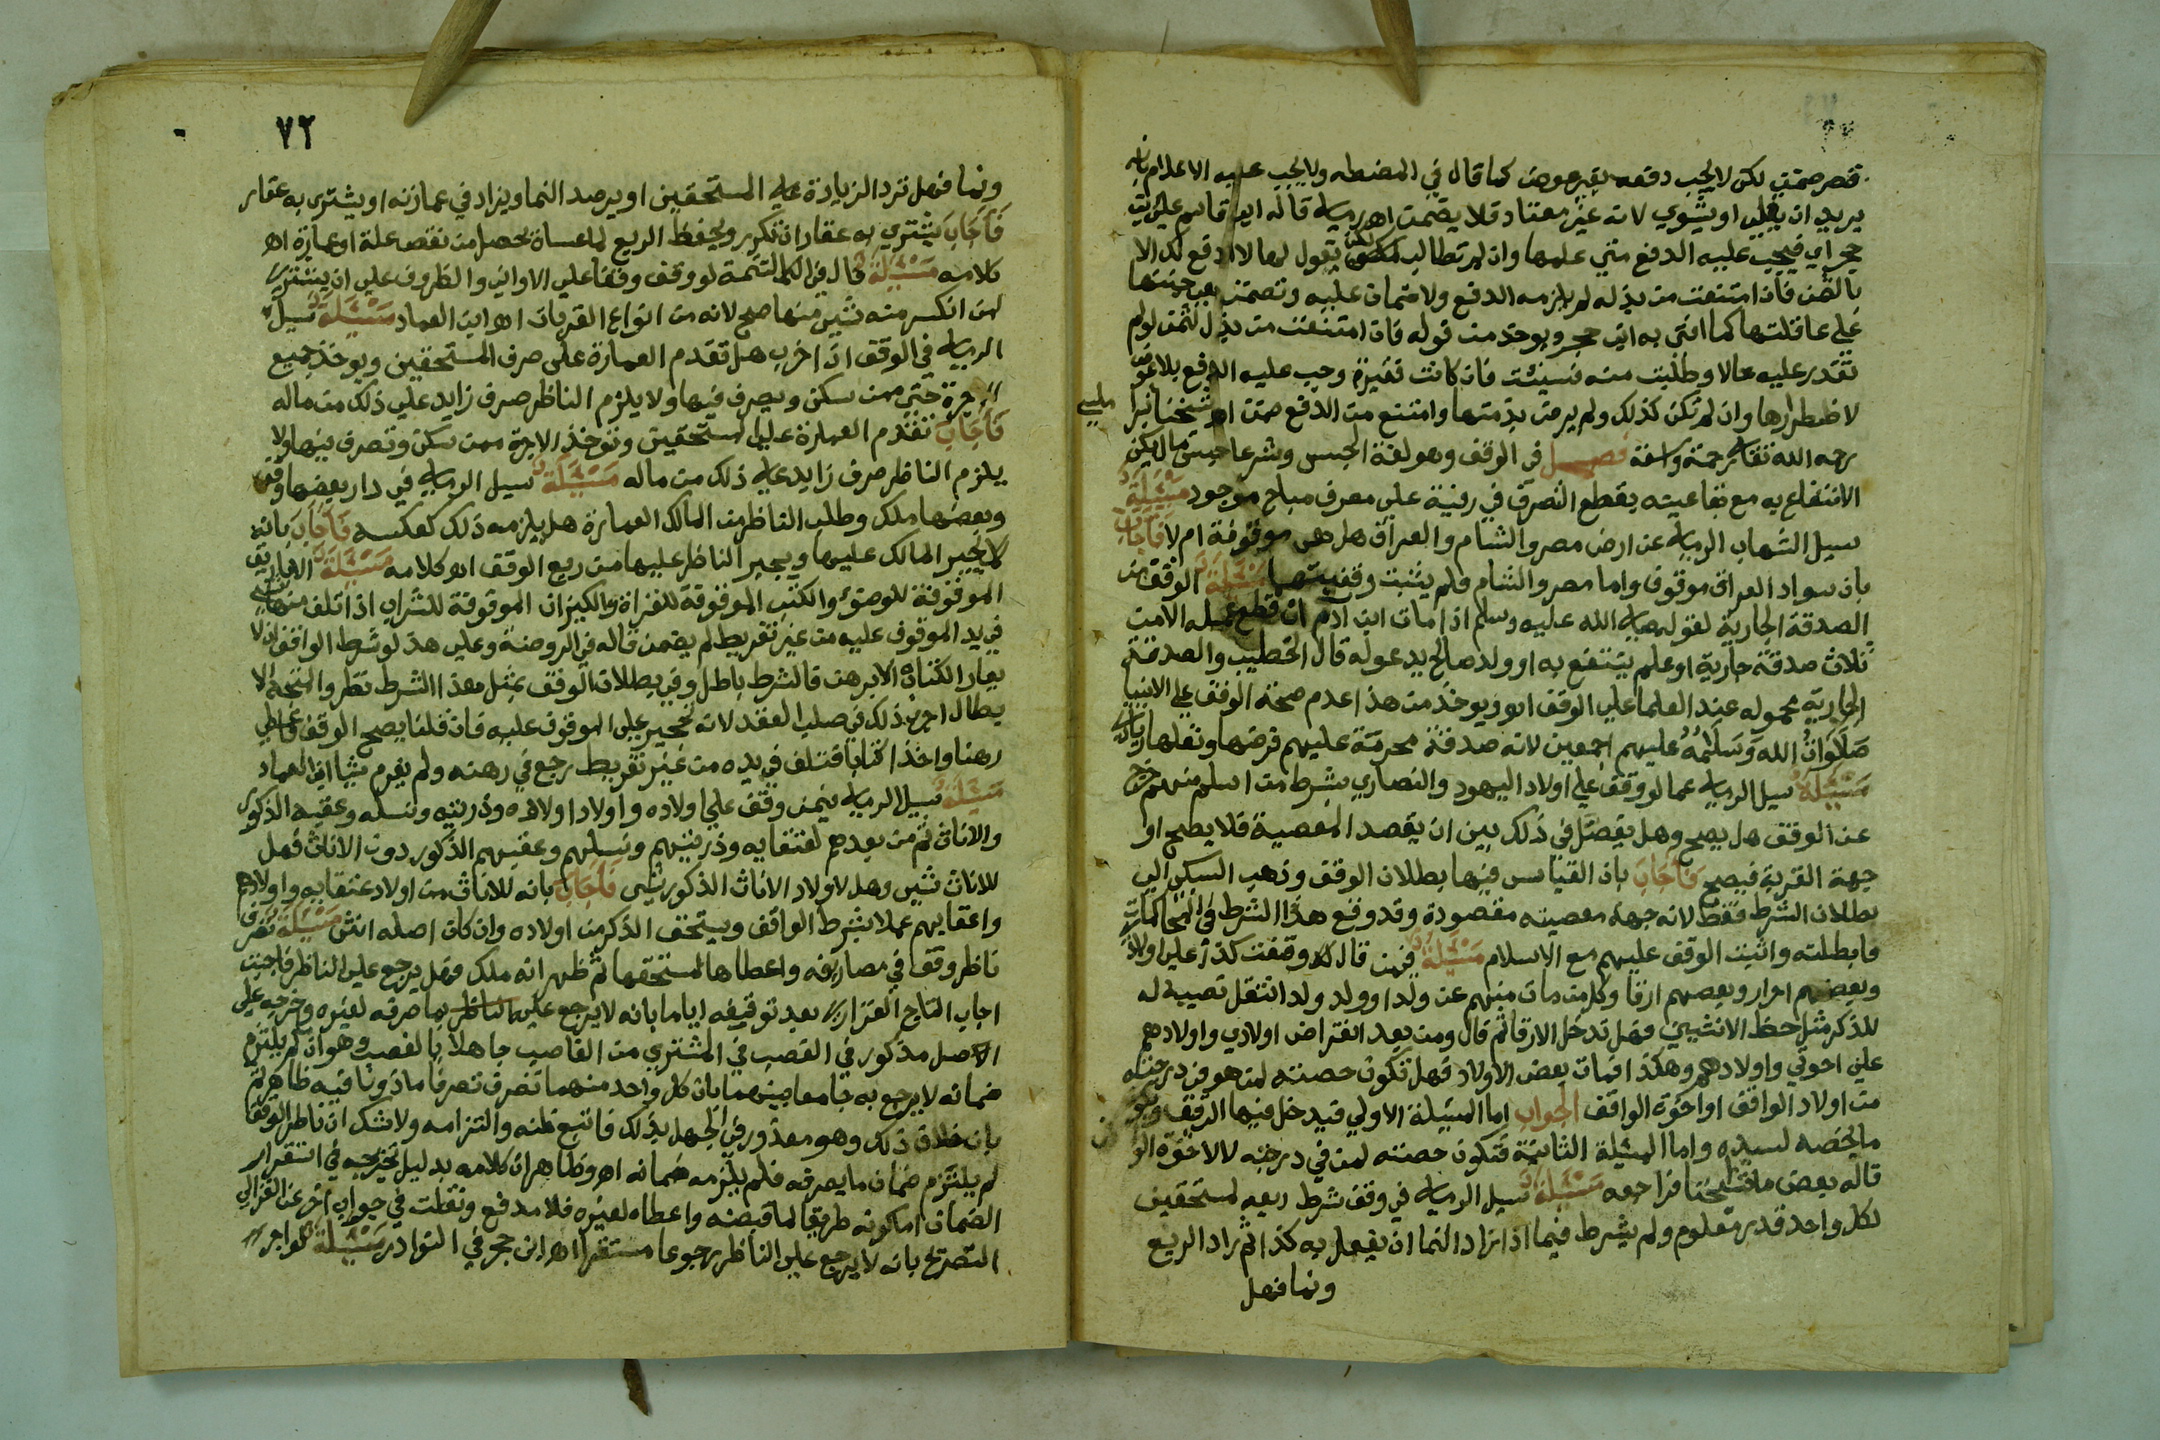 قصر ضمن لكن لا يجب دفعه بغير عوض كما قال في المضطر ولا يجب عليه الا اعلام بانه
يريد ان يقلي او يشوي لانه غير معتاد فلا يضمن اه رملي قال ابن قاسم علي بن
حجر اي فيجب عليه الدفع متي علمها وان لم تطالب لكن يقول لها لا ادفع لك الا
بالثمن فان امتنعت من بذله لم يلزمه الدفع ولا ضمان عليه وتضمن هي جنينها
علي عاقلتها كما افتي به ابن حجر ويوخذ من قوله فان امتنعت من بذل الثمن لو لم
تقدر عليه حالا وطلبت منه نسيئة فان كانت فقيرة وجب عليه الدفع بلا عوض
لاضطرارها وان لم تكن كذلك ولم يرض بذمتها وامتنع من الدفع ضمن اه شيخنا شبرا
ملسي
رحمه الله تعالي رحمة واسعة فصل في الوقف وهو لغة الحبس وشرعا حبس ما يمكن
الانتفاع به مع بقا عينه بقطع التصرف في رقبته علي مصرف مباح موجود مسئلة
سيل الشهاب الرملي عن ارض مصر والشام والعراق هل هي موقوفة ام لا فاجاب
بان سواد العراق موقوف واما مصر والشام فلم يثبت وقفيتهما مسئلة الوقف من
الصدقة الجارية لقوله صلي الله عليه وسلم اذا مات ابن ادم انقطع عمله الا من
ثلاث صدقة جارية او علم ينتفع به او ولد صالح يدعو له قال الخطيب والصدقة
الجارية محموله عند العلما علي الوقف اه ويوخذ من هذا عدم صحة الوقف علي الانبيا
صلوات الله وسلامه عليهم اجمعين لانه صدقة محرمة عليهم فرضها ونفلها زيادي
مسئلة سيل الرملي عما لو وقف علي اولاد اليهود والنصاري بشرط من اسلم منهم خرج
عن الوقف هل يصح وهل يفصل في ذلك بين ان يقصد المعصية فلا يصح او
جهة القربة فيصح فاجاب بان القياس فيها بطلان الوقف وذهب السبكي الي
بطلان الشرط فقط لانه جهة معصيته مقصودة وقد وقع هذا الشرط في المحاكمات
فابطلته واثبت الوقف عليهم مع الاسلام مسئلة فيمن قال وقفت كذا علي اولاد
وبعضهم احرار وبعضهم ارقا وكل من مات منهم عن ولدا وولد ولد انتقل نصيبه له
للذكر مثل حظ الانثيين فهل تدخل الارقا ثم قال ومن بعد انقراض اولادي واولادهم
علي اخوتي واولادهم وهكذا فمات بعض الاولاد فهل تكون حصته لمن هو في درجته
من اولاد الواقف او اخوة الواقف الجواب اما المسئلة الاولي فيدخل فيها الرقيق ويكون
ما يخصه لسيده واما المسئلة الثانية فتكون حصته لمن في درجته لا لاخوة الوا
قاله بعض مشايخنا فراجعه مسئلة سيل الرملي في وقف شرط ريعه لمستحقين
لكل واحد قدر معلوم ولم يشرط فيما اذا زاد النما ان يفعل به كذا ثم زاد الريع
ونما فهل
٧٢
ونما فهل ترد الزيادة علي المستحقين او يرصد النما ويزاد في عمارته او يشتري به عقار
فاجاب يشتري به عقار ان تكرر ويحفظ الريع لما عساه يحصل من نقص غلة او عمارة اه
كلامه مسئلة قال في التتمة لو وقف وقفا علي الاواني والظروف علي ان يشتري
لمن انكسر منه شي منها صح لانه من انواع القربات اه ابن العماد مسئلة سيل
الرملي في الوقف اذا خرب هل تقدم العمارة علي صرف المستحقين ويوخذ جميع
الاجرة حتي ممن سكن ويصرف فيها ولا يلزم الناظر صرف زايد علي ذلك من ماله
فاجاب تقدم العمارة علي المستحقين وتوخذ الاجرة ممن سكن وتصرف فيها ولا
يلزم الناظر صرف زايد علي ذلك من ماله مسئلة سيل الرملي في دار بعضها وقف
وبعضها ملك وطلب الناظر من المالك العمارة هل يلزمه ذلك كعكسه فاجاب بانه
لا يجبر المالك عليها ويجبر الناظر عليها من ريع الوقف اه كلامه مسئلة الاباريق
الموقوفة للوضوء والكتب الموقوفة للقراة والكيزان الموقوفة للشراب اذا تلف منها شي
في يد الموقوف عليه من غير تفريط لم يضمن قاله في الروضة وعلي هذا لو شرط الواقف ان لا
يعار الكتاب الا برهن فالشرط باطل وفي بطلان الوقف بمثل هذا الشرط نظر والمتجه الا
بطال اجري ذلك في صلب العقد لانه تحجير علي الموقوف عليه فان قلنا يصح الوقف فاعطي
رهنا واخذ كتابا فتلف في يده من غير تفريط رجع في رهنه ولم يغرم شيا ابن العماد
مسئلة سيل الرملي فيمن وقف علي اولاده واولاد اولاده وذريته ونسله وعقبه الذكور
والاناث ثم من بعدهم لعتقايه وذريتهم ونسلهم وعقبهم الذكور دون الاناث فهل
للاناث شي وهل لاولاد الاناث الذكور شي فاجاب بانه للاناث من اولاد عتقايه واولادهم
واعقابهم عملا بشرط الواقف ويستحق الذكر من اولاده وان كان اصله انثي مسئلة تصرف
ناظر وقف في مصاريفه واعطاها لمستحقها ثم ظهر انه ملك فهل يرجع علي الناظر فاجبت
اجاب التاج الفزاري بعد توقيفه اياما بانه لا يرجع علي الناظر بما صرفه لغيره وخرجه علي
الاصل مذكور في الغصب في المشتري من الغاصب جاهلا بالغصب وهو ان لم يلتزم
ضمانه لا يرجع به بجامع بينهما بان كل واحد منهما تصرف تصرفا ماذونا فيه ظاهرا ثم
بان خلاف ذلك وهو معذور في الجهل بذلك فاتبع ظنه والتزامه ولا شك ان ناظر الوقف
لم يلتزم ضمان ما يصرفه فلم يلزمه ضمانه اه وظاهر ان كلامه بدليل تخريجه في استقرار
الضمان اما كونه طريقا لما قبضه واعطاه لغيره فلا مدفع ونقلت في جواب اخر عن الغزالي
التصريح بانه لا يرجع علي الناظر رجوعا مستقرا اه ابن حجر في النوادر مسئلة لو اجر